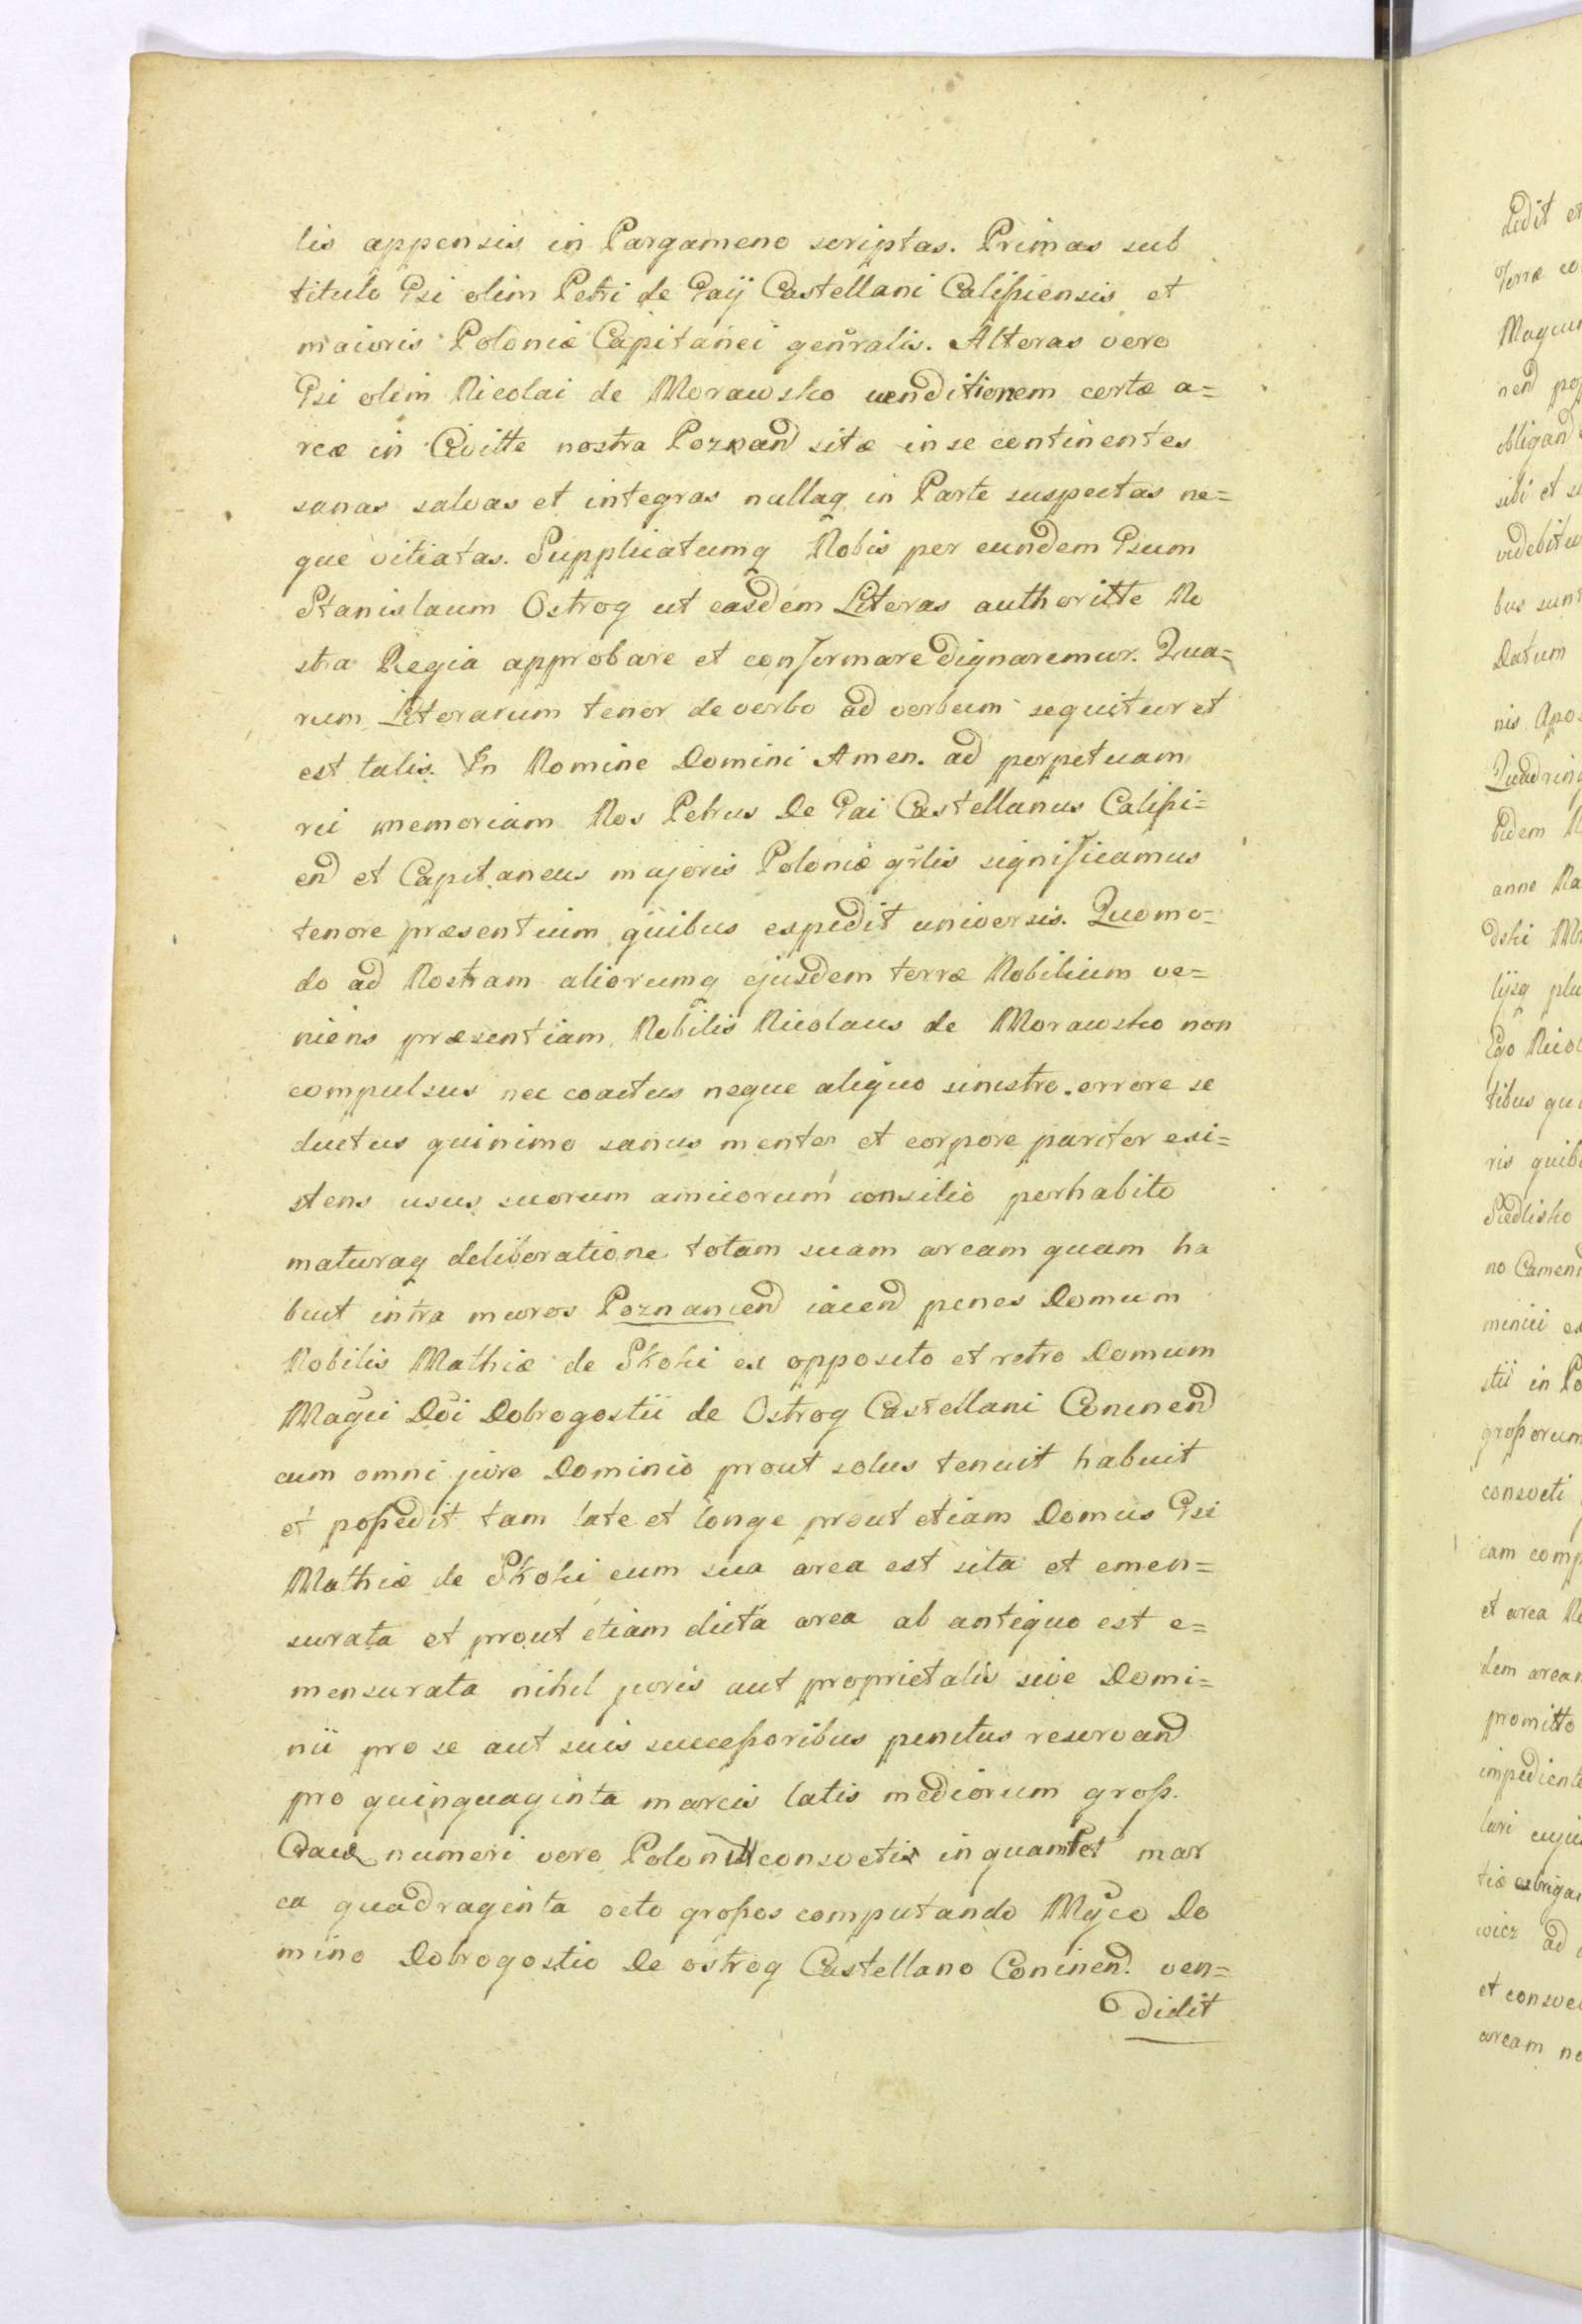 lis appensis in Pargameno scriptas. Primas sub
titulo Gsi olim Petri de Gaÿ Castellani Calißiensis et
maioris Poloniæ Capitanei genralis. Alteras vero
Gsi olim Nicolai de Morawsko venditionem certæ a=
reæ in Civitte nostra Poznand sitæ in se continentes
sanas salvas et integras nullaq in Parte suspectas ne=
que vitiatas. Supplicatumq Nobis per eundem Gsum
Stanislaum Ostrog ut easdem Literas authoritte No
stra Regia approbare et confirmare dignaremur. Qua=
rum Literarum tenor de verbo ad verbum sequitur et
est talis. In Nomine Domini Amen. ad perpetuam
rei memoriam Nos Petrus De Gai Castellanus Calißi=
end et Capitaneus majoris Poloniæ grlis significamus
tenore præsentium quibus expedit universis. Quomo=
do ad Nostram aliorumq ejusdem terræ Nobilium ve=
niens præsentiam Nobilis Nicolaus de Morawsko non
compulsus nec coactus neque aliquo sinistro errore se
ductus quinimo sanus mente et corpore pariter exi=
stens usus suorum amicorum consilio perhabito
maturaq deliberatione totam suam aream quam ha
buit intra muros Poznaniend iacend penes Domum
Nobilis Mathiæ de Skoki ex opposito et retro Domum
Magci Doi Dobrogostii de Ostrog Castellani Coninend
cum omni jure Dominio prout solus tenuit habuit
et poßedit tam late et longe prout etiam Domus Gsi
Mathiæ de Skoki cum sua area est sita et emen=
surata et prout etiam dicta area ab antiquo est e=
mensurata nihil juris aut proprietatis sive Domi=
nii pro se aut suis succeßoribus penitus reservand
pro quinquaginta marcis latis mediorum groß.
numeri vero consvetis in mar
ca quadraginta octo großos computando Mgco Do
mino Dobrogostio De ostrog Castellano Coninend. ven=
didit